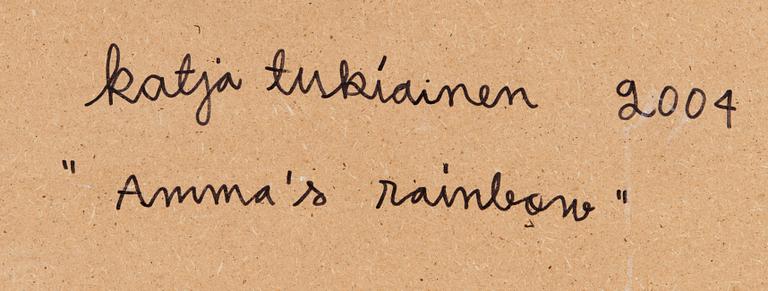 katja tukiainen 2004
"Amma's rainbow"